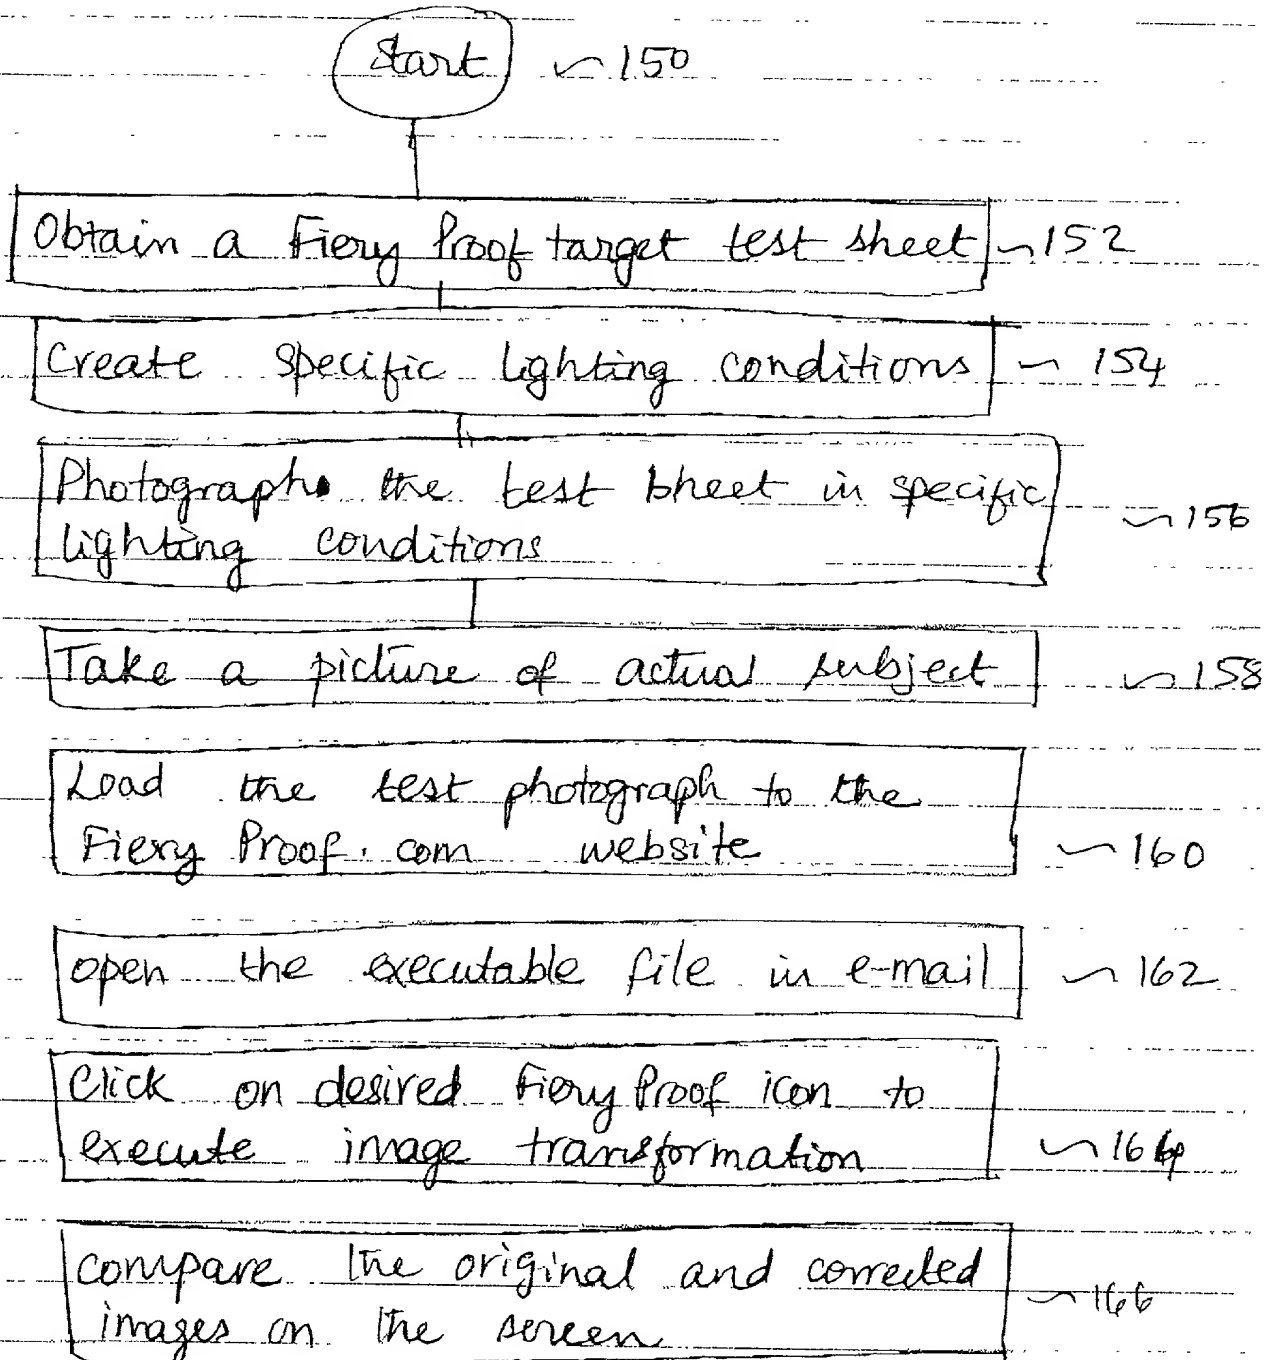 Start 150
Obtain a Fiery Proof target test sheet 152
Create specific lighting conditions 154
Photograph the test sheet in specific
lighting conditions 156
Take a picture of actual subject 158
Load the test photograph to the
Fiery Proof.com website 160
open the executable file in e-mail 162
Click on desired Fiery Proof icon to
execute image transformation 164
compare the original and corrected
images on the screen 166